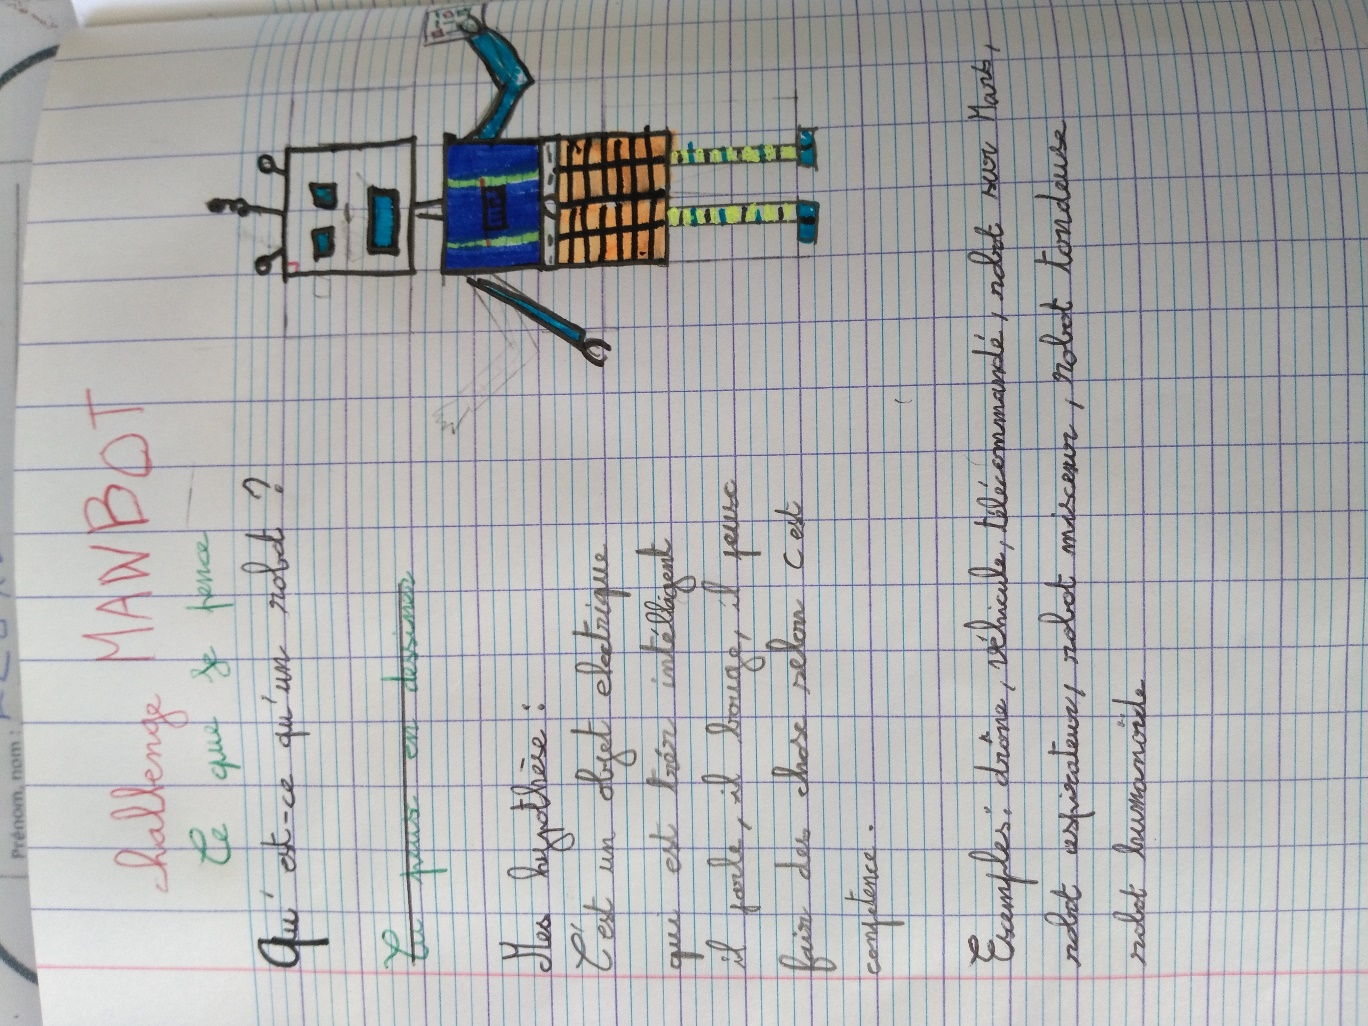 Prénom, nom :
challenge MAWBOT
Ce que je pence
Qu'est-ce qu'un robot ?
Tu peux en dessiner
Mes hypothèse :
C'est un objet electrique
qui est trér intélligent
il parle, il bouge, il peux
fair des chose selon c'est
compétence.
Exemples: drône, véhicule, télécommandé, robot sur Mars,
robot aspirateur, robot mixceur, robot tondeuse
robot humanoïde